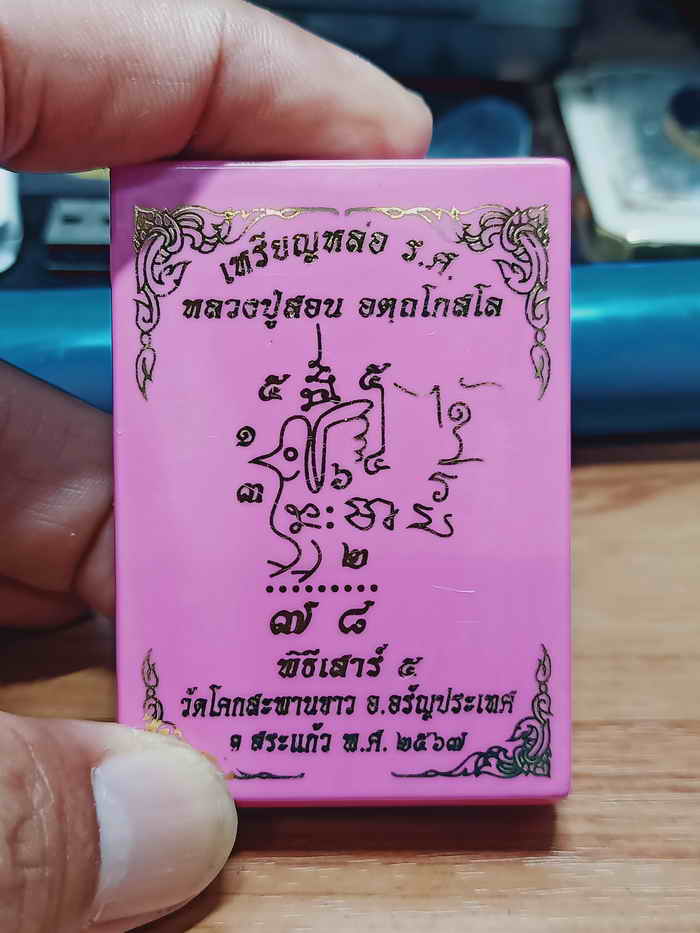 เหรียญหล่อ ร.ศ.
หลวงปู่สอน อตฺถโกสโล
๕ ๕
๑
๓ ๖ ๕
๒
๗ ๘
พิธีเสาร์ ๕
วัดโคกสะพานขาว อ.อรัญประเทศ
จ สระแก้ว พ.ศ. ๒๕๖๗